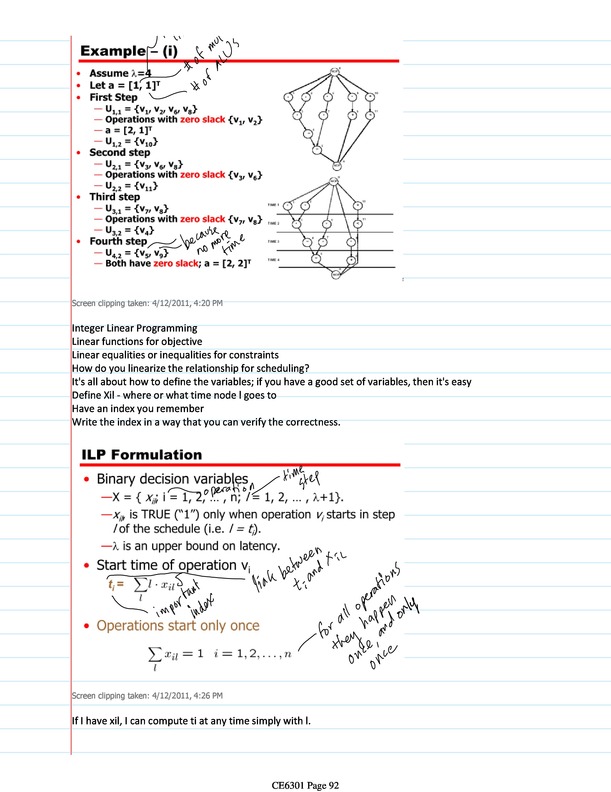 Example – (i)
# of mul
# of ALUs
• Assume λ=4
• Let a = [1, 1]ᵀ
• First Step
— U₁,₁ = {v₁, v₂, v₆, v₈}
— Operations with zero slack {v₁, v₂}
— a = [2, 1]ᵀ
— U₁,₂ = {v₁₀}
• Second step
— U₂,₁ = {v₃, v₆, v₈}
— Operations with zero slack {v₃, v₆}
— U₂,₂ = {v₁₁}
• Third step
— U₃,₁ = {v₇, v₈}
— Operations with zero slack {v₇, v₈}
— U₃,₂ = {v₄}
• Fourth step
— U₄,₂ = {v₅, v₉}
— Both have zero slack; a = [2, 2]ᵀ
because
no more
time
TIME 1
TIME 2
TIME 3
TIME 4
Screen clipping taken: 4/12/2011, 4:20 PM
Integer Linear Programming
Linear functions for objective
Linear equalities or inequalities for constraints
How do you linearize the relationship for scheduling?
It's all about how to define the variables; if you have a good set of variables, then it's easy
Define Xil - where or what time node l goes to
Have an index you remember
Write the index in a way that you can verify the correctness.
ILP Formulation
• Binary decision variables
operation
time
step
—X = { xᵢₗ, i = 1, 2, … , n; l = 1, 2, … , λ+1}.
—xᵢₗ, is TRUE ("1") only when operation vᵢ starts in step
l of the schedule (i.e. l = tᵢ).
—λ is an upper bound on latency.
• Start time of operation vᵢ
tᵢ = ∑ₗ l · xᵢₗ
important
index
link between
tᵢ and xᵢₗ
• Operations start only once
∑ₗ xᵢₗ = 1 i = 1, 2, . . . , n
for all operations
they happen
once, and only
once
Screen clipping taken: 4/12/2011, 4:26 PM
If I have xil, I can compute ti at any time simply with l.
CE6301 Page 92